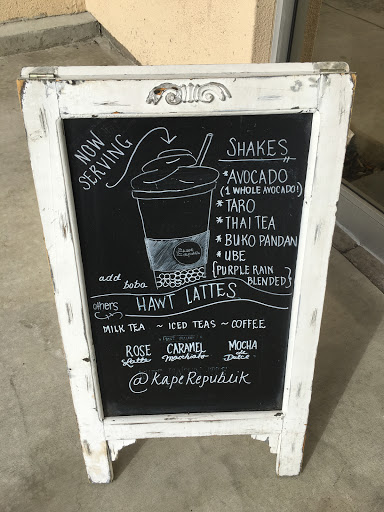 NOW
SERVING
SHAKES
*AVOCADO
(1 WHOLE AVOCADO!)
*TARO
*THAI TEA
*BUKO PANDAN
*UBE
{PURPLE RAIN
BLENDED}
add boba
others
HAWT LATTES
MILK TEA ~ ICED TEAS ~ COFFEE
ROSE
Latte
CARAMEL
Macchiato
MOCHA
de
Dulce
@KapeRepublik